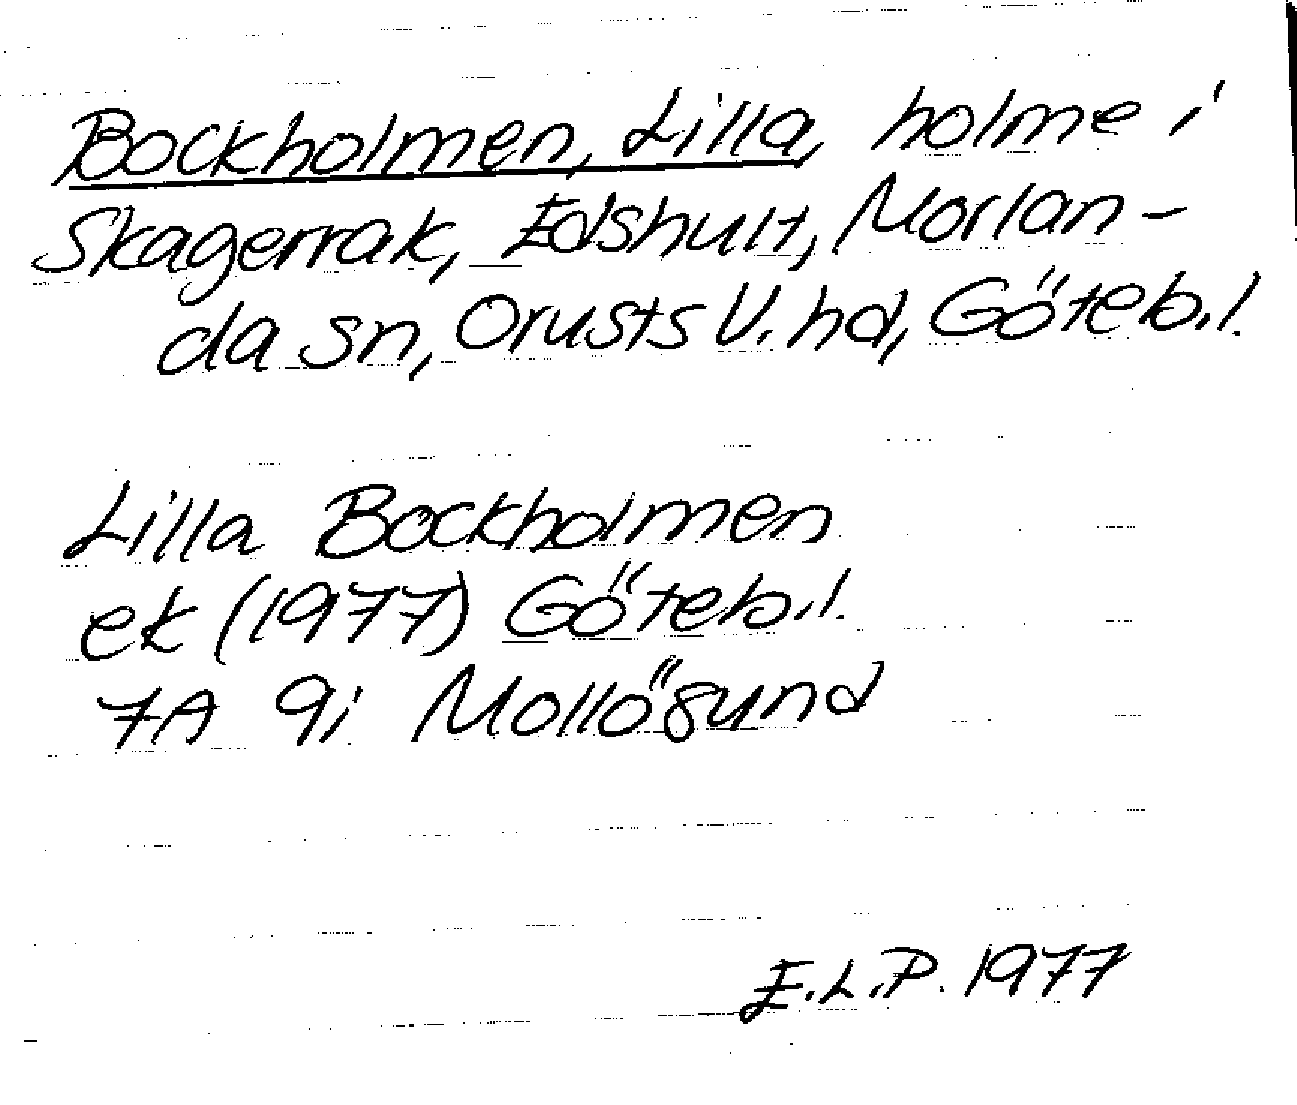 Bockholmen, Lilla, holme i
Skagerrak, Edshult, Morlan-
da sn, Orusts V. hd, Göteb.l.
Lilla Bockholmen
ek (1977) Göteb.l.
7A 9i Mollösund
E.L.P. 1977